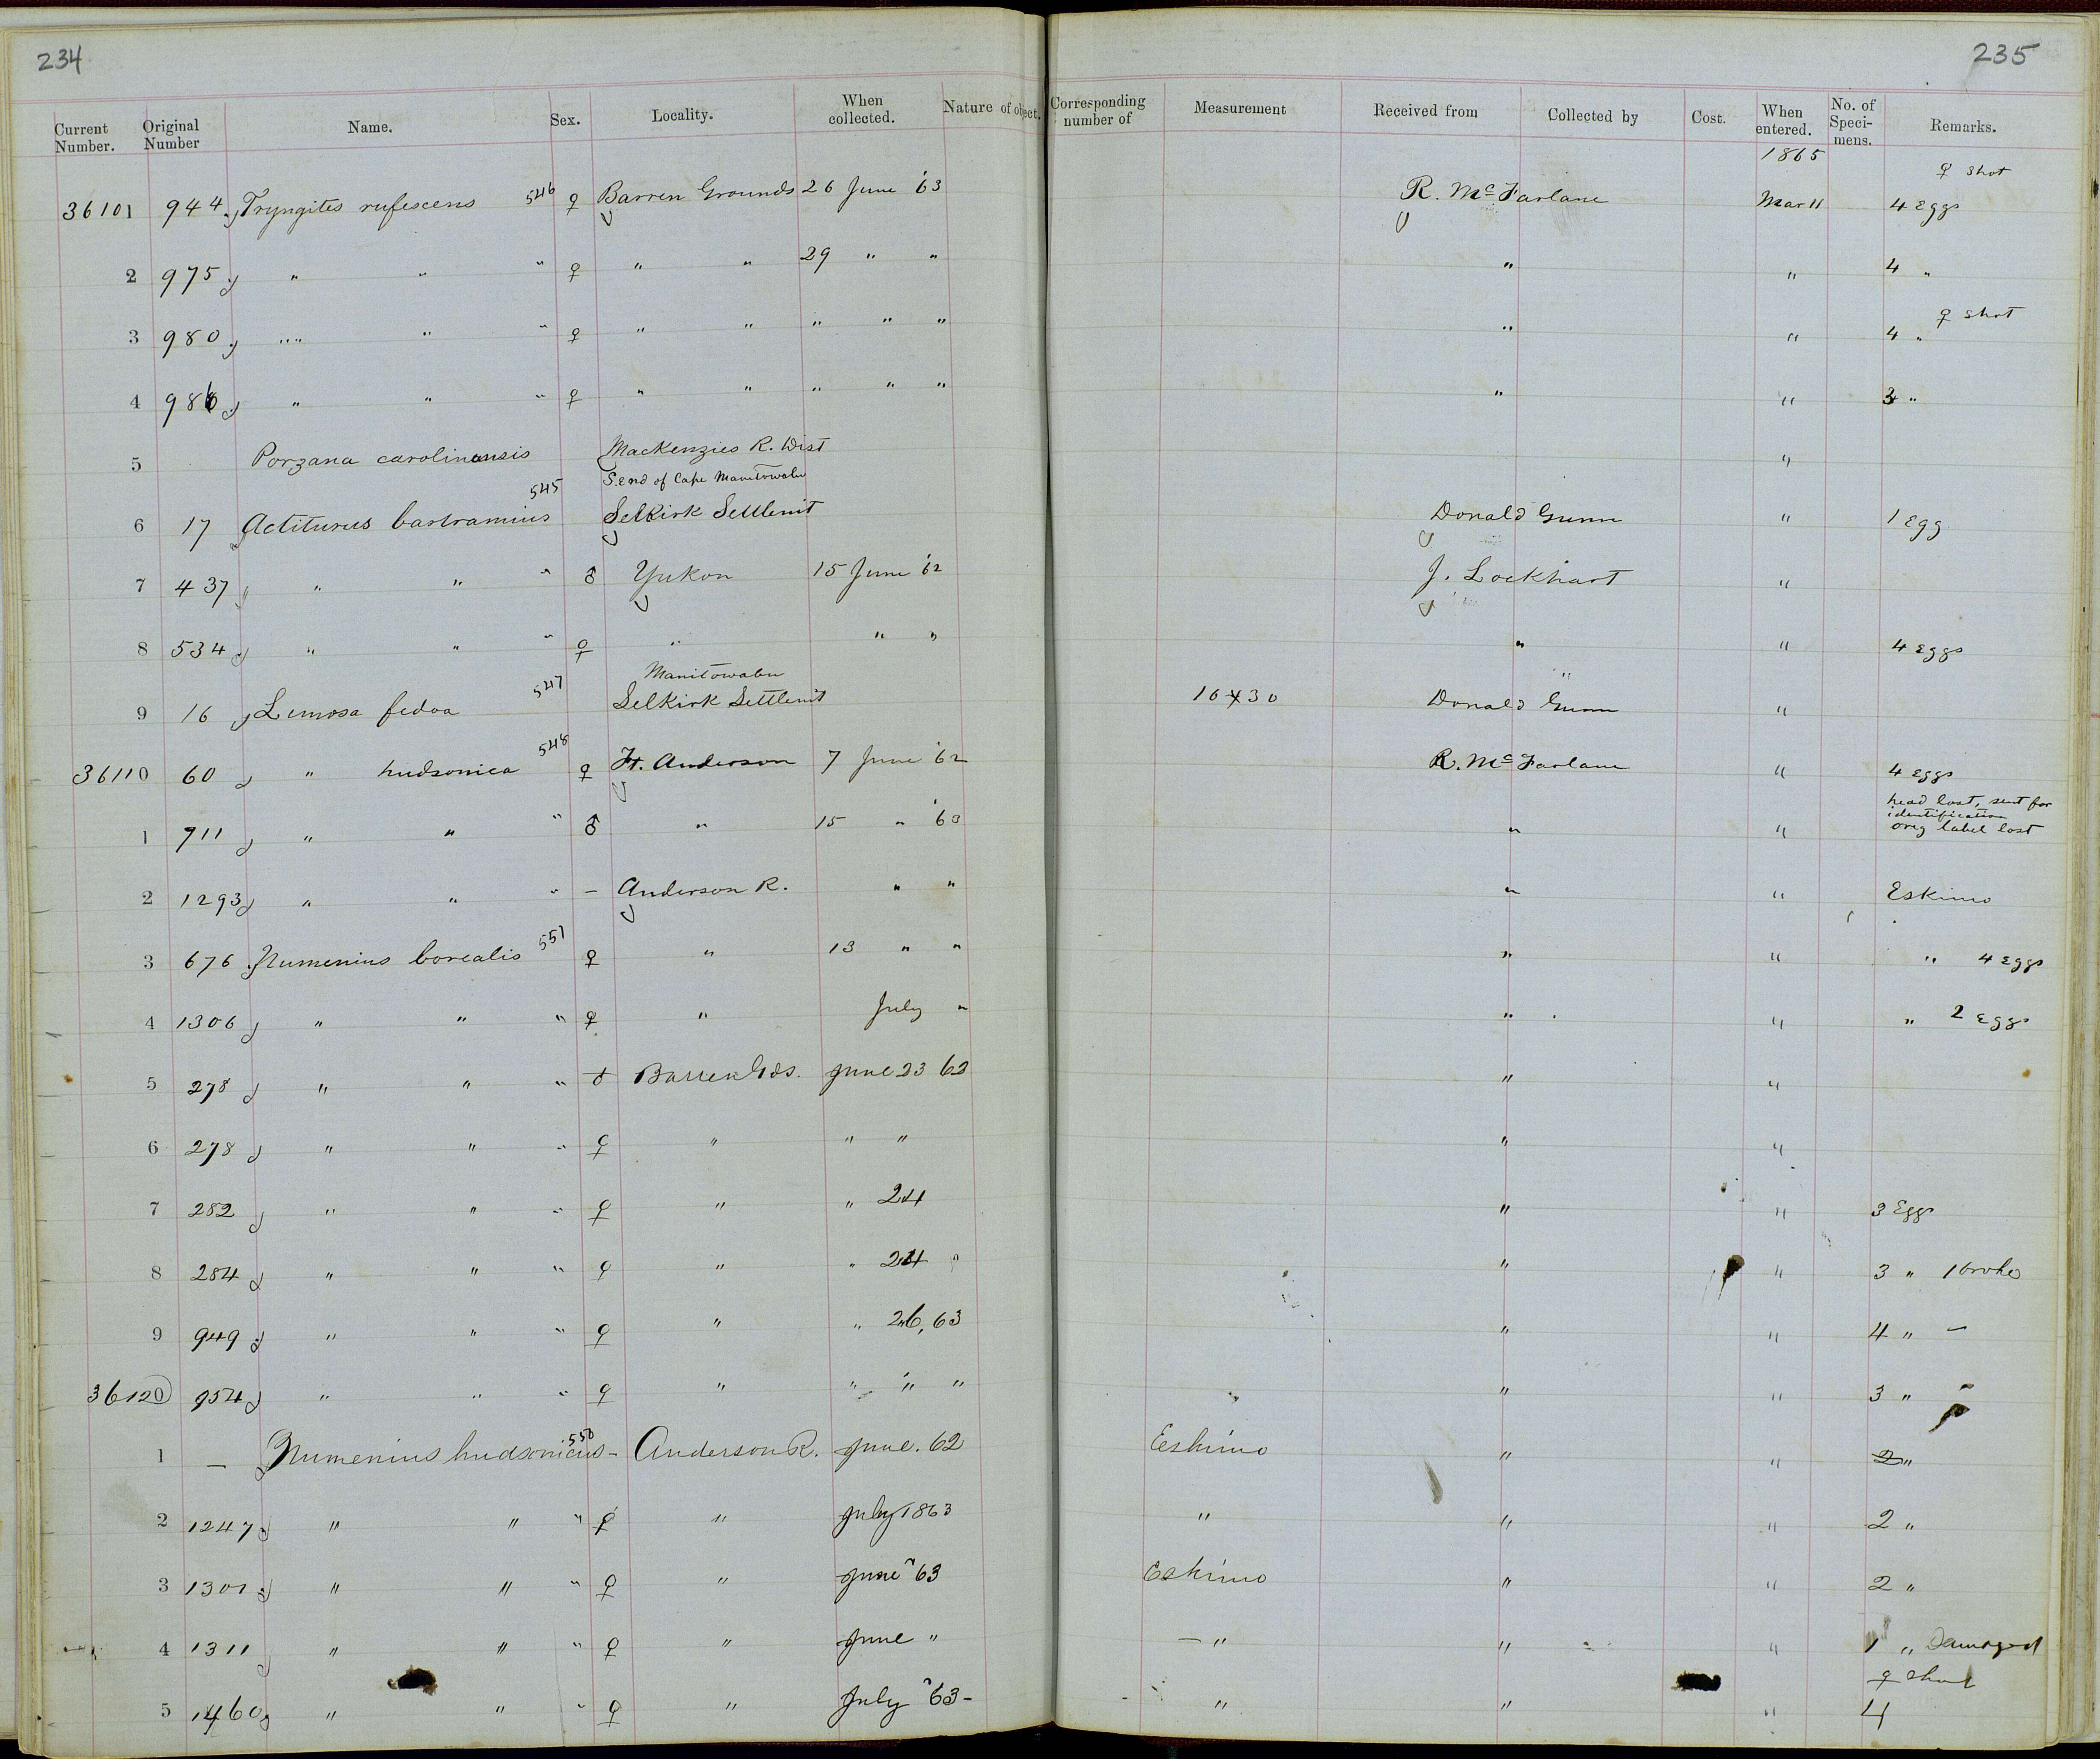 234
235
Current Number. Original Number Name. Sex. Locality. When collected. Nature of object. Corresponding number of Measurement Received from Collected by Cost. When entered. No. of Specimens. Remarks.
1865
♀ shot
36101 944 Tryngites rufescens 546 ♀ Barren Grounds 26 June '63 R. McFarlane Mar 11 4 Eggs
2 975 " " " ♀ " " 29 " " " " 4 "
♀ shot
3 980 " " " ♀ " " " " " " " 4 "
4 986 " " " ♀ " " " " " " " 3 "
5 Porzana carolinensis Mackenzies R. Dist "
545 S. end of Cape Manitowabu
6 17 Actiturus bartramius Selkirk Settlemt Donald Gunn " 1 Egg
7 437 " " " ♂ Yukon 15 June '62 J. Lockhart "
8 534 " " " ♀ " " " " " 4 Eggs
Manitowabu "
9 16 Limosa fedoa 547 Selkirk Settlemt 16 x 30 Donald Gunn "
36110 60 " hudsonica 548 ♀ Ft. Anderson 7 June '62 R. McFarlane " 4 Eggs
head lost, sent for
identification
1 911 " " " ♂ " 15 " '63 " " orig label lost
2 1293 " " " – Anderson R. " " " " Eskimo
3 676 Numenius borealis 551 ♀ " 13 " " " " " 4 Eggs
4 1306 " " " ♀ " July " " " " 2 Eggs
5 278 " " " ♂ Barren Gds. June 23 62 " "
6 278 " " " ♀ " " " " "
7 282 " " " ♀ " " 24 " " 3 Eggs
8 284 " " " ♀ " " 24 " " " 3 " 1 broke
9 949 " " " ♀ " " 26, 63 " " 4 " –
36120 954 " " " ♀ " " " " " " 3 " "
1 – Numenius hudsonicus 550 – Anderson R. June. 62 Eskimo " " 2 "
2 1247 " " " ♀ " July 1863 " " " 2 "
3 1301 " " " ♀ " June " 63 Eskimo " " 2 "
4 1311 " " " ♀ " June " – " " " 1 " Damaged
♀ shot
5 1460 " " " ♀ " July " 63 – " " " 4